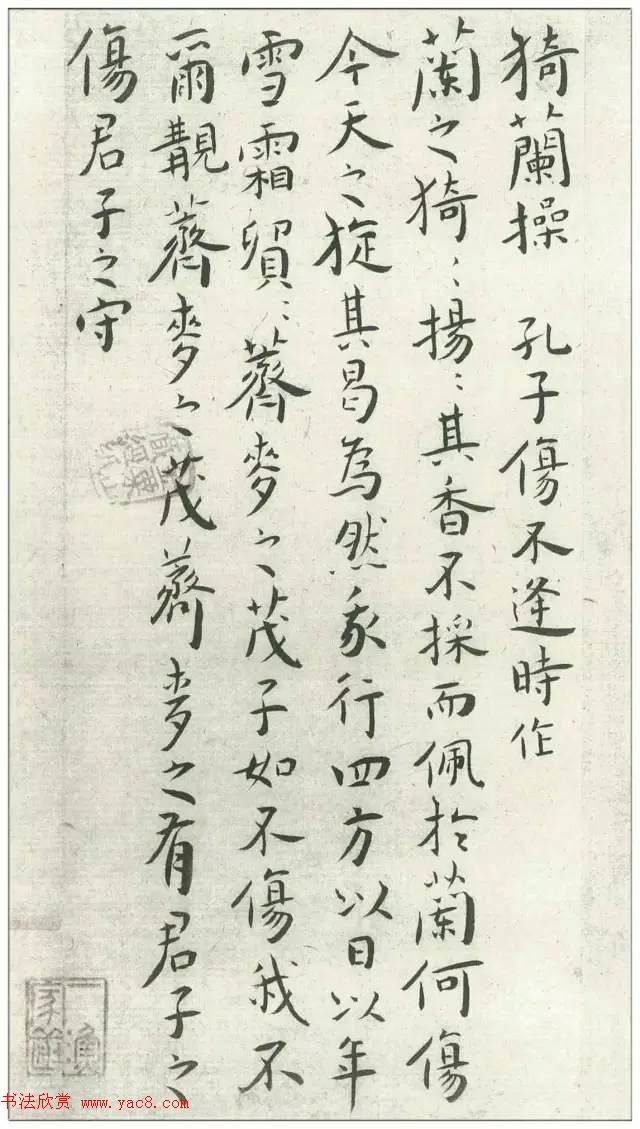 猗蘭操 孔子傷不逢時作
蘭之猗〻揚〻其香不採而佩於蘭何傷
今天之旋其曷為然我行四方以日以年
雪霜貿〻薺麥之茂子如不傷我不
爾覯薺麥之茂薺麥之有君子之
傷君子之守
书法欣赏 www.yac8.com